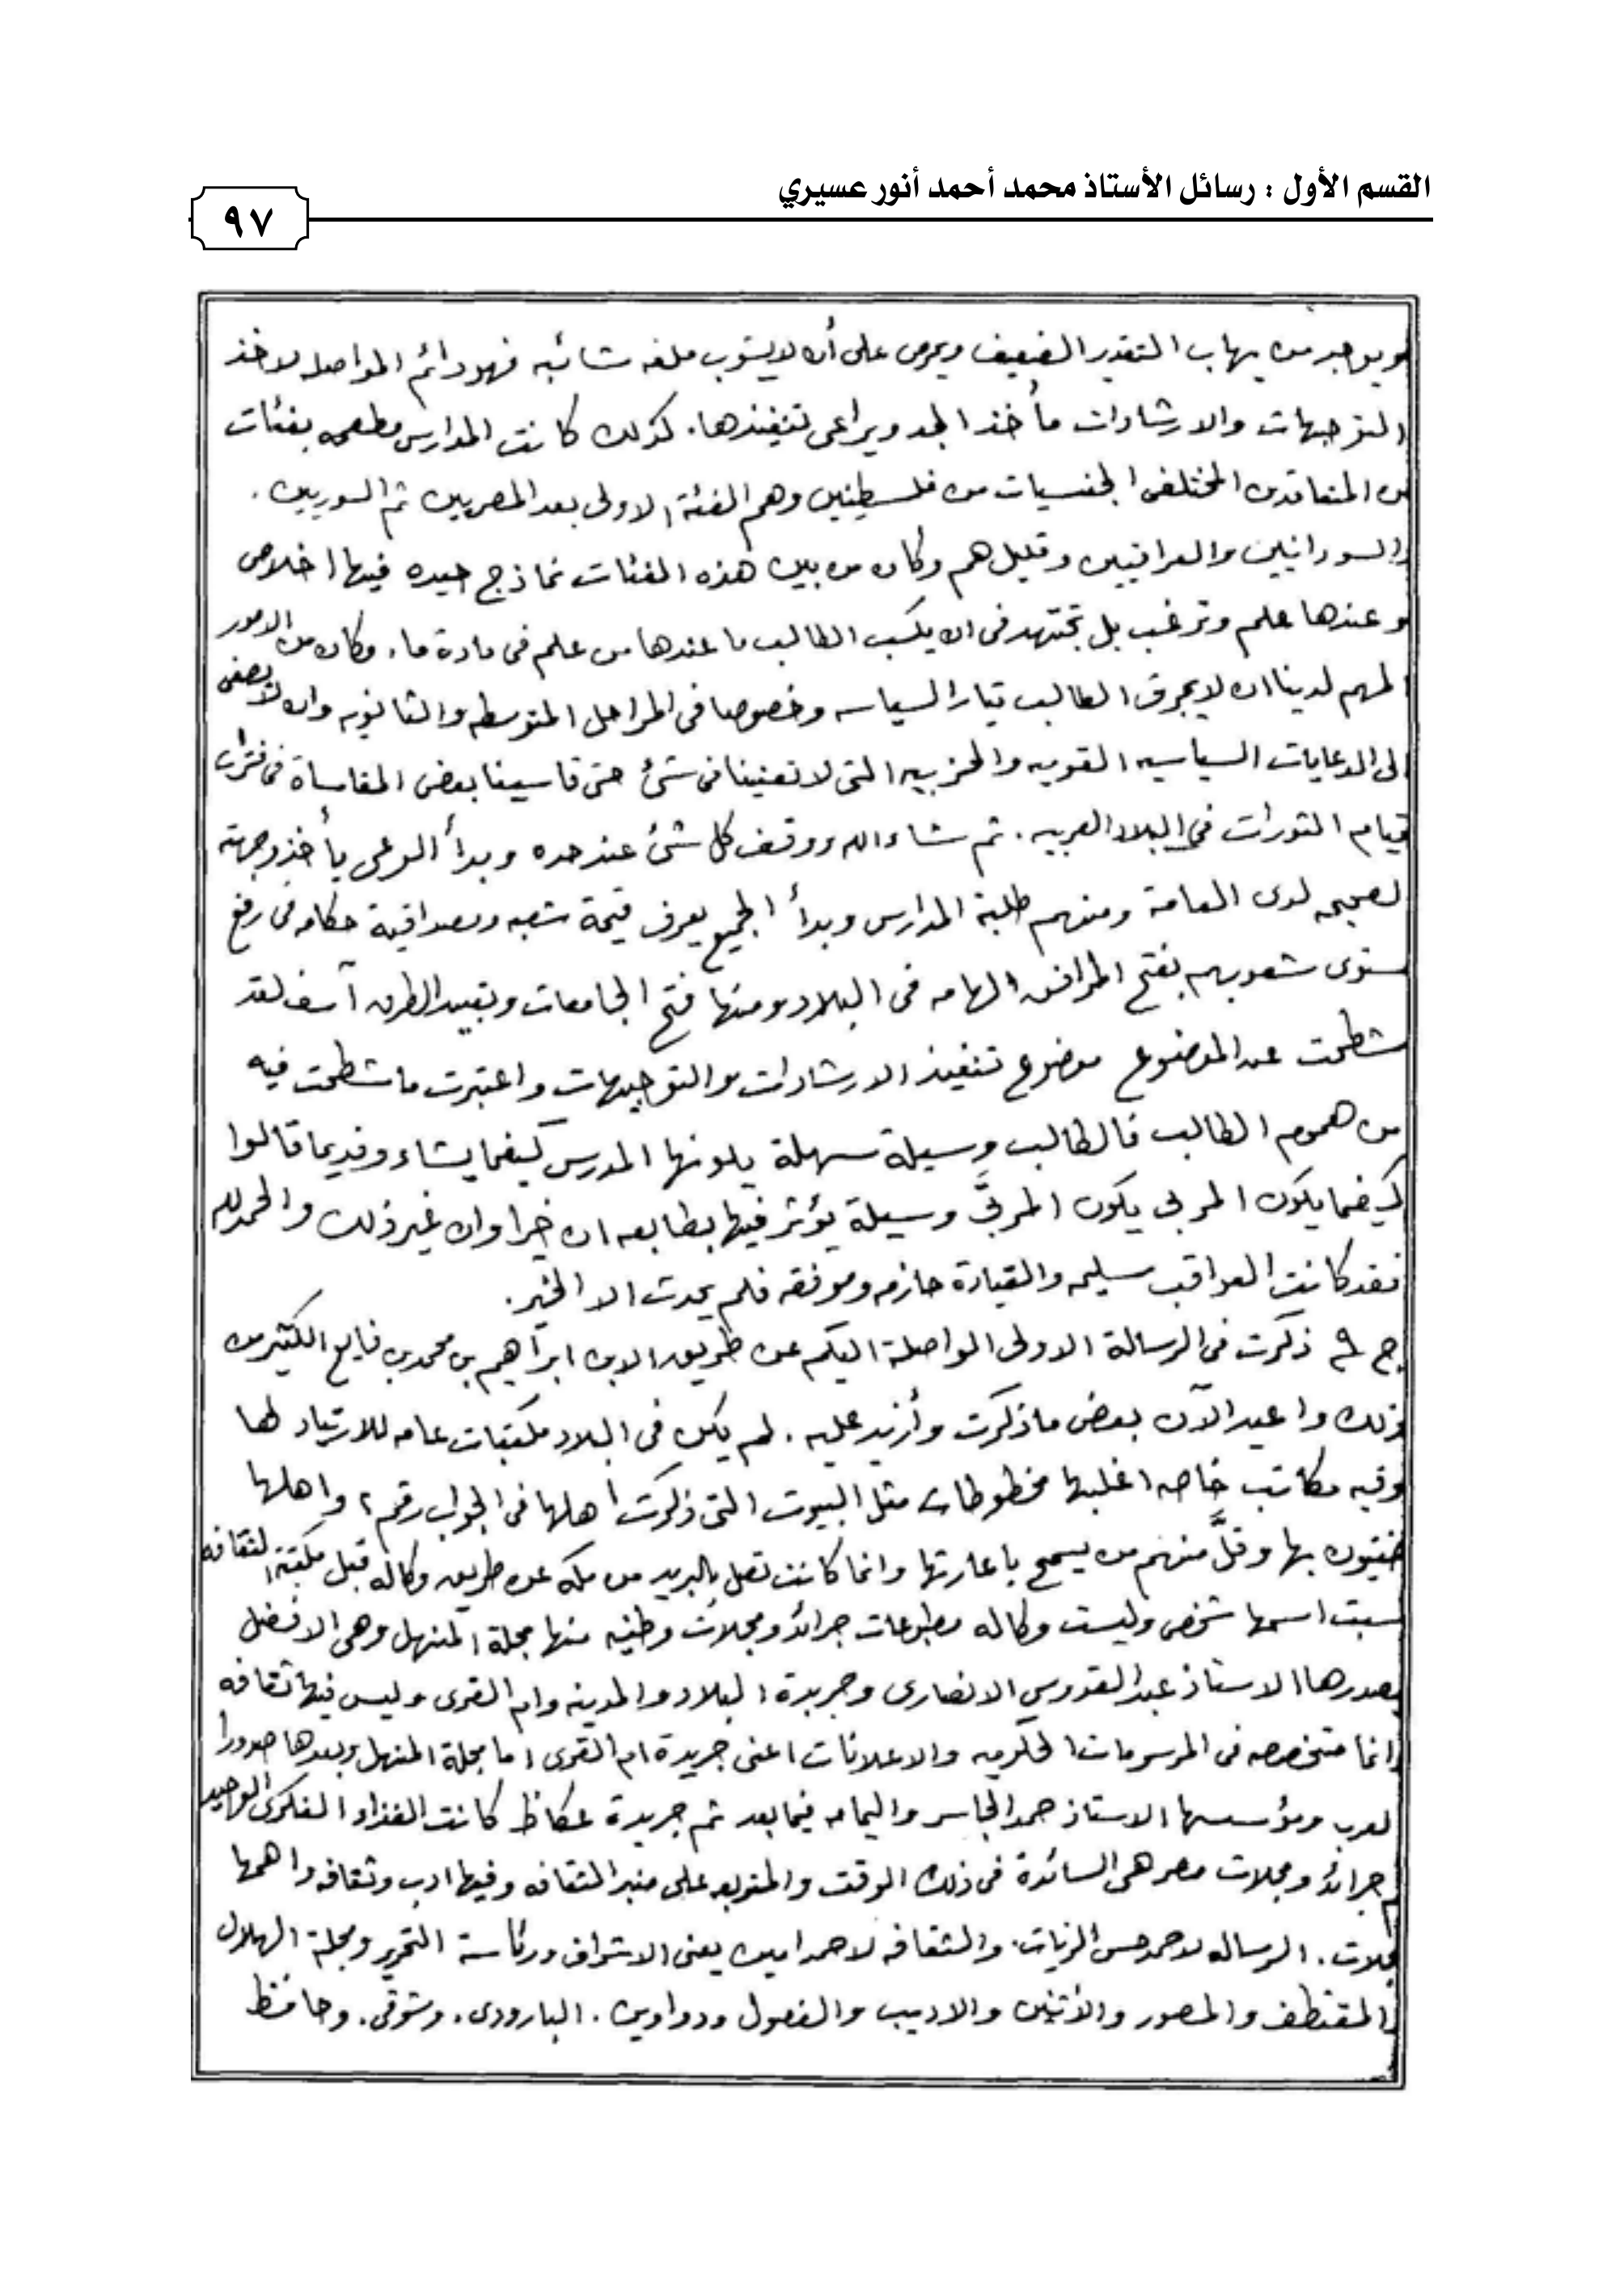 القسم الأول : رسائل الأستاذ محمد أحمد أنور عسيري
٩٧
ويوجد من يهاب التقدير الضعيف ويحرص على أن لا يشوب ملفه شائبه فهو دائم المواصله لاخذ
التوجيهات والارشادات مأخذ الجد ويراعى تنفيذها. كذلك كانت المدارس مطعمه بفئات
من المتعاقدين المختلفى الجنسيات من فلسطينين وهم الفئة الاولى بعد المصريين ثم السوريين .
والسودانيين والعراقيين وقليل هم وكان من بين هذه الفئات نماذج جيده فيها اخلاص
وعندها علم وترغب بل تجتهد فى ان يكسب الطالب ما عندها من علم فى مادة ما. وكان من الامور
المهم لدينا ان لا يجرف الطالب تيار السياسه وخصوصا فى المراحل المتوسطه والثانويه وان لا يصغى
الى الدعايات السياسيه القوميه والحزبيه التى لا تعنينا فى شئ حتى قاسينا بعض المقاساة فى فترات
قيام الثورات فى البلاد العربيه . ثم شاء الله ووقف كل شئ عند حده وبدأ الوعى يأخذ وجهته
لصحيحه لدى العامة ومنهم طلبة المدارس وبدأ الجميع يعرف قيمة شعبه ومصداقية حكامه فى رفع
ستوى شعوبهم بفتح المرافق الهامه فى البلاد ومنها فتح الجامعات وتعبيد الطرق آسف لقد
شطحت عن الموضوع موضوع تنفيذ الارشادات والتوجيهات واعتبرت ما شطحت فيه
من هموم الطالب فالطالب وسيلة سهلة يلونها المدرس كيفما يشاء وقديما قالوا
كيفما يكون المربي يكون المربَّى وسيلة يؤثر فيها بطابعه ان خيرا وان غير ذلك والحمد لله
فقد كانت العواقب سليمه والقيادة حازمه وموفقه فلم يحدث الا الخير.
ج ٩ ذكرت فى الرسالة الاولى الواصلة اليكم عن طريق الابن ابراهيم بن محمد بن فايع الكثير من
ذلك واعيد الآن بعض ما ذكرت وأزيد عليه . لم يكن فى البلاد مكتبات عامه للارتياد لها
وفيه مكاتب خاصه اغلبها مخطوطات مثل البيوت التى ذكرت أهلها فى الجواب رقم ٢ واهلها
ضنينون بها وقلَّ منهم من يسمح باعارتها وانما كانت تصل بالبريد من مكه عن طريق وكاله قبل مكتبة الثقافه
سبت اسمها شخص وليست وكاله مطبوعات جرائد ومجلات وطنيه منها مجلة المنهل وهى الافضل
يصدرها الاستاذ عبد القدوس الانصارى وجريدة البلاد والمدينه وام القرى وليس فيها ثقافه
وانما متخصصه فى المرسومات الحكوميه والاعلانات اعنى جريدة ام القرى اما مجلة المنهل وبعدها صدورا
لعرب ومؤسسها الاستاذ حمد الجاسر واليمامه فيما بعد ثم جريدة عكاظ كانت الغذاء الفكرى الوحيد
جرائد ومجلات مصر هى السائدة فى ذلك الوقت والمتربعه على منبر الثقافه وفيها ادب وثقافه واهمها
جلات . الرساله لاحمد حسن الزيات . والثقافه لاحمد امين يعنى الاشراف ورئاسة التحرير ومجلة الهلال
والمقتطف والمصور والأثنين والاديب والفصول ودواوين . البارودى . وشوقى . وحافظ